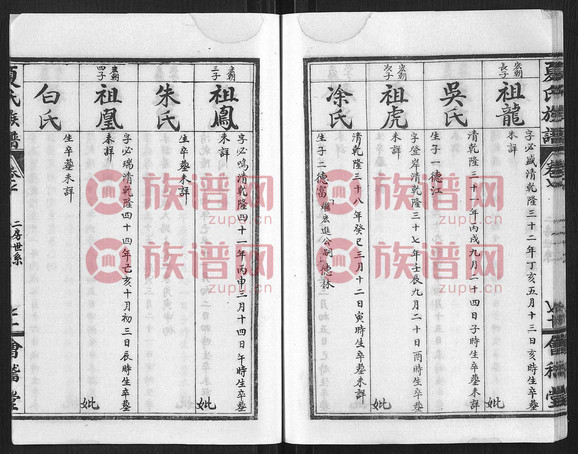 夏氏族譜
會稽堂
宏朝長子
祖龍
字必盛清乾隆三十二年丁亥五月十三日亥時生卒塟
未詳
妣
吳氏
清乾隆三十一年丙戌九月二十四日子時生卒塟未詳
生子一德江
宏朝次子
祖虎
字登岸清乾隆三十七年壬辰九月二十日酉時生卒塟
未詳
妣
涂氏
清乾隆三十八年癸巳三月十二日寅時生卒塟未詳
生子二德富 德林
宏朝三子
祖鳳
字必鳴清乾隆四十一年丙申三月十四日午時生卒塟
未詳
妣
朱氏
生卒塟未詳
宏朝四子
祖凰
字必瑞清乾隆四十四年己亥十月初三日辰時生卒塟
未詳
妣
白氏
生卒塟未詳
夏氏族譜
二房世系
會稽堂
族谱网
zupu.cn
族谱网
zupu.cn
族谱网
zupu.cn
族谱网
zupu.cn